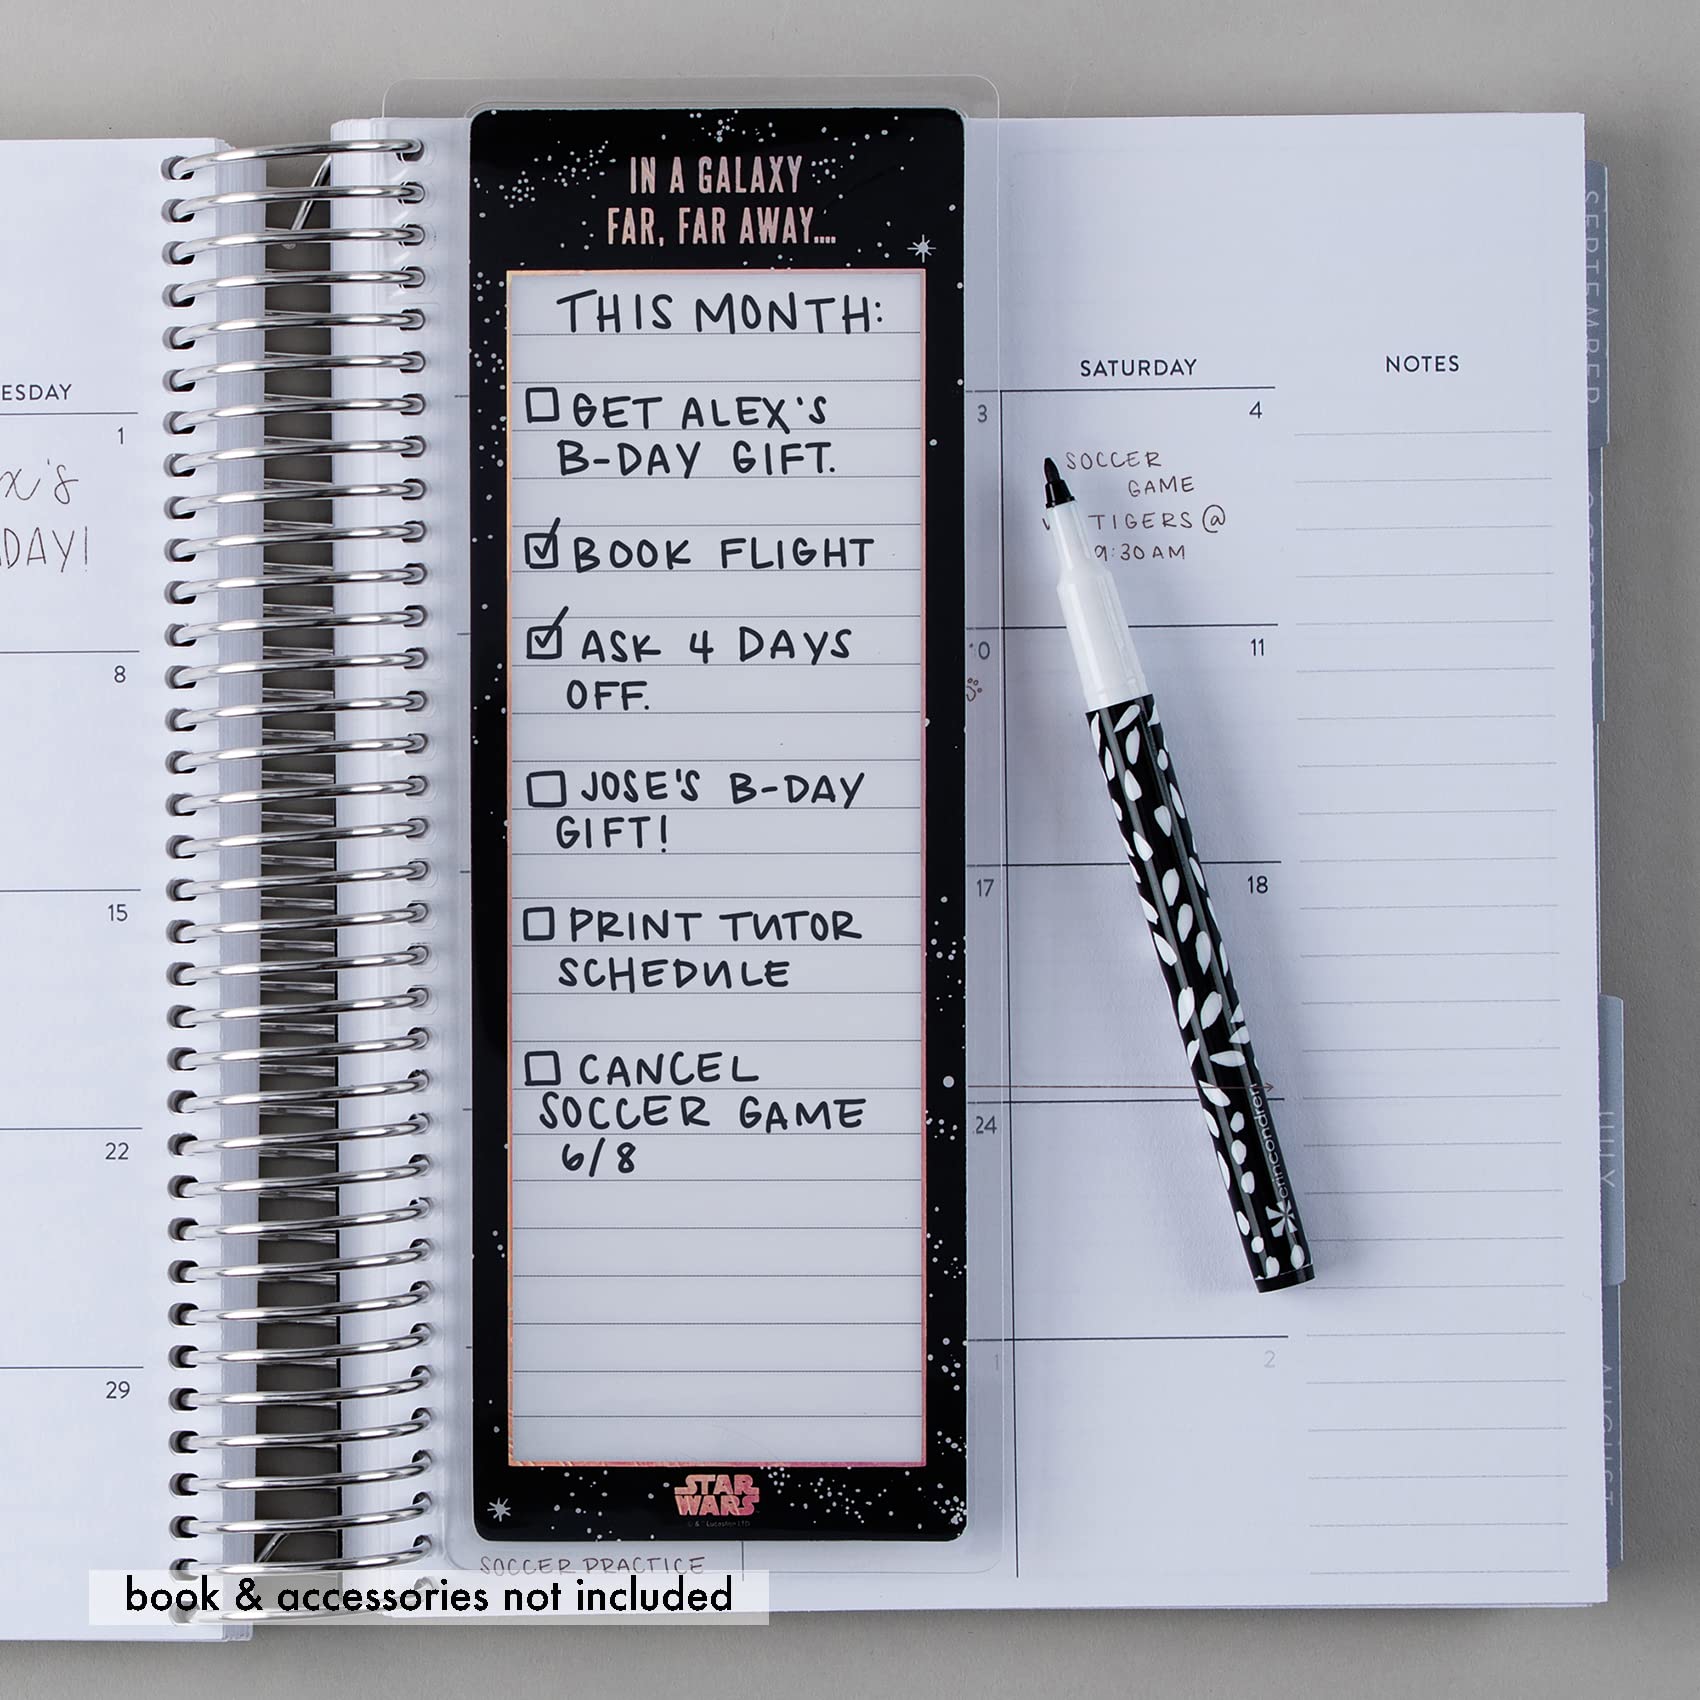 IN A GALAXY
FAR, FAR AWAY....
THIS MONTH:
GET ALEX'S
B-DAY GIFT.
BOOK FLIGHT
ASK 4 DAYS
OFF.
JOSE'S B-DAY
GIFT!
PRINT TUTOR
SCHEDULE
CANCEL
SOCCER GAME
6/8
STAR
WARS
ESDAY
1
X'S
DAY!
8
15
22
29
SATURDAY
NOTES
3
4
SOCCER
GAME
TIGERS @
9:30 AM
11
17
18
24
1
2
SOCCER PRACTICE
erincondren
SEPTEMBER
OCTOBER
JULY
AUGUST
book & accessories not included